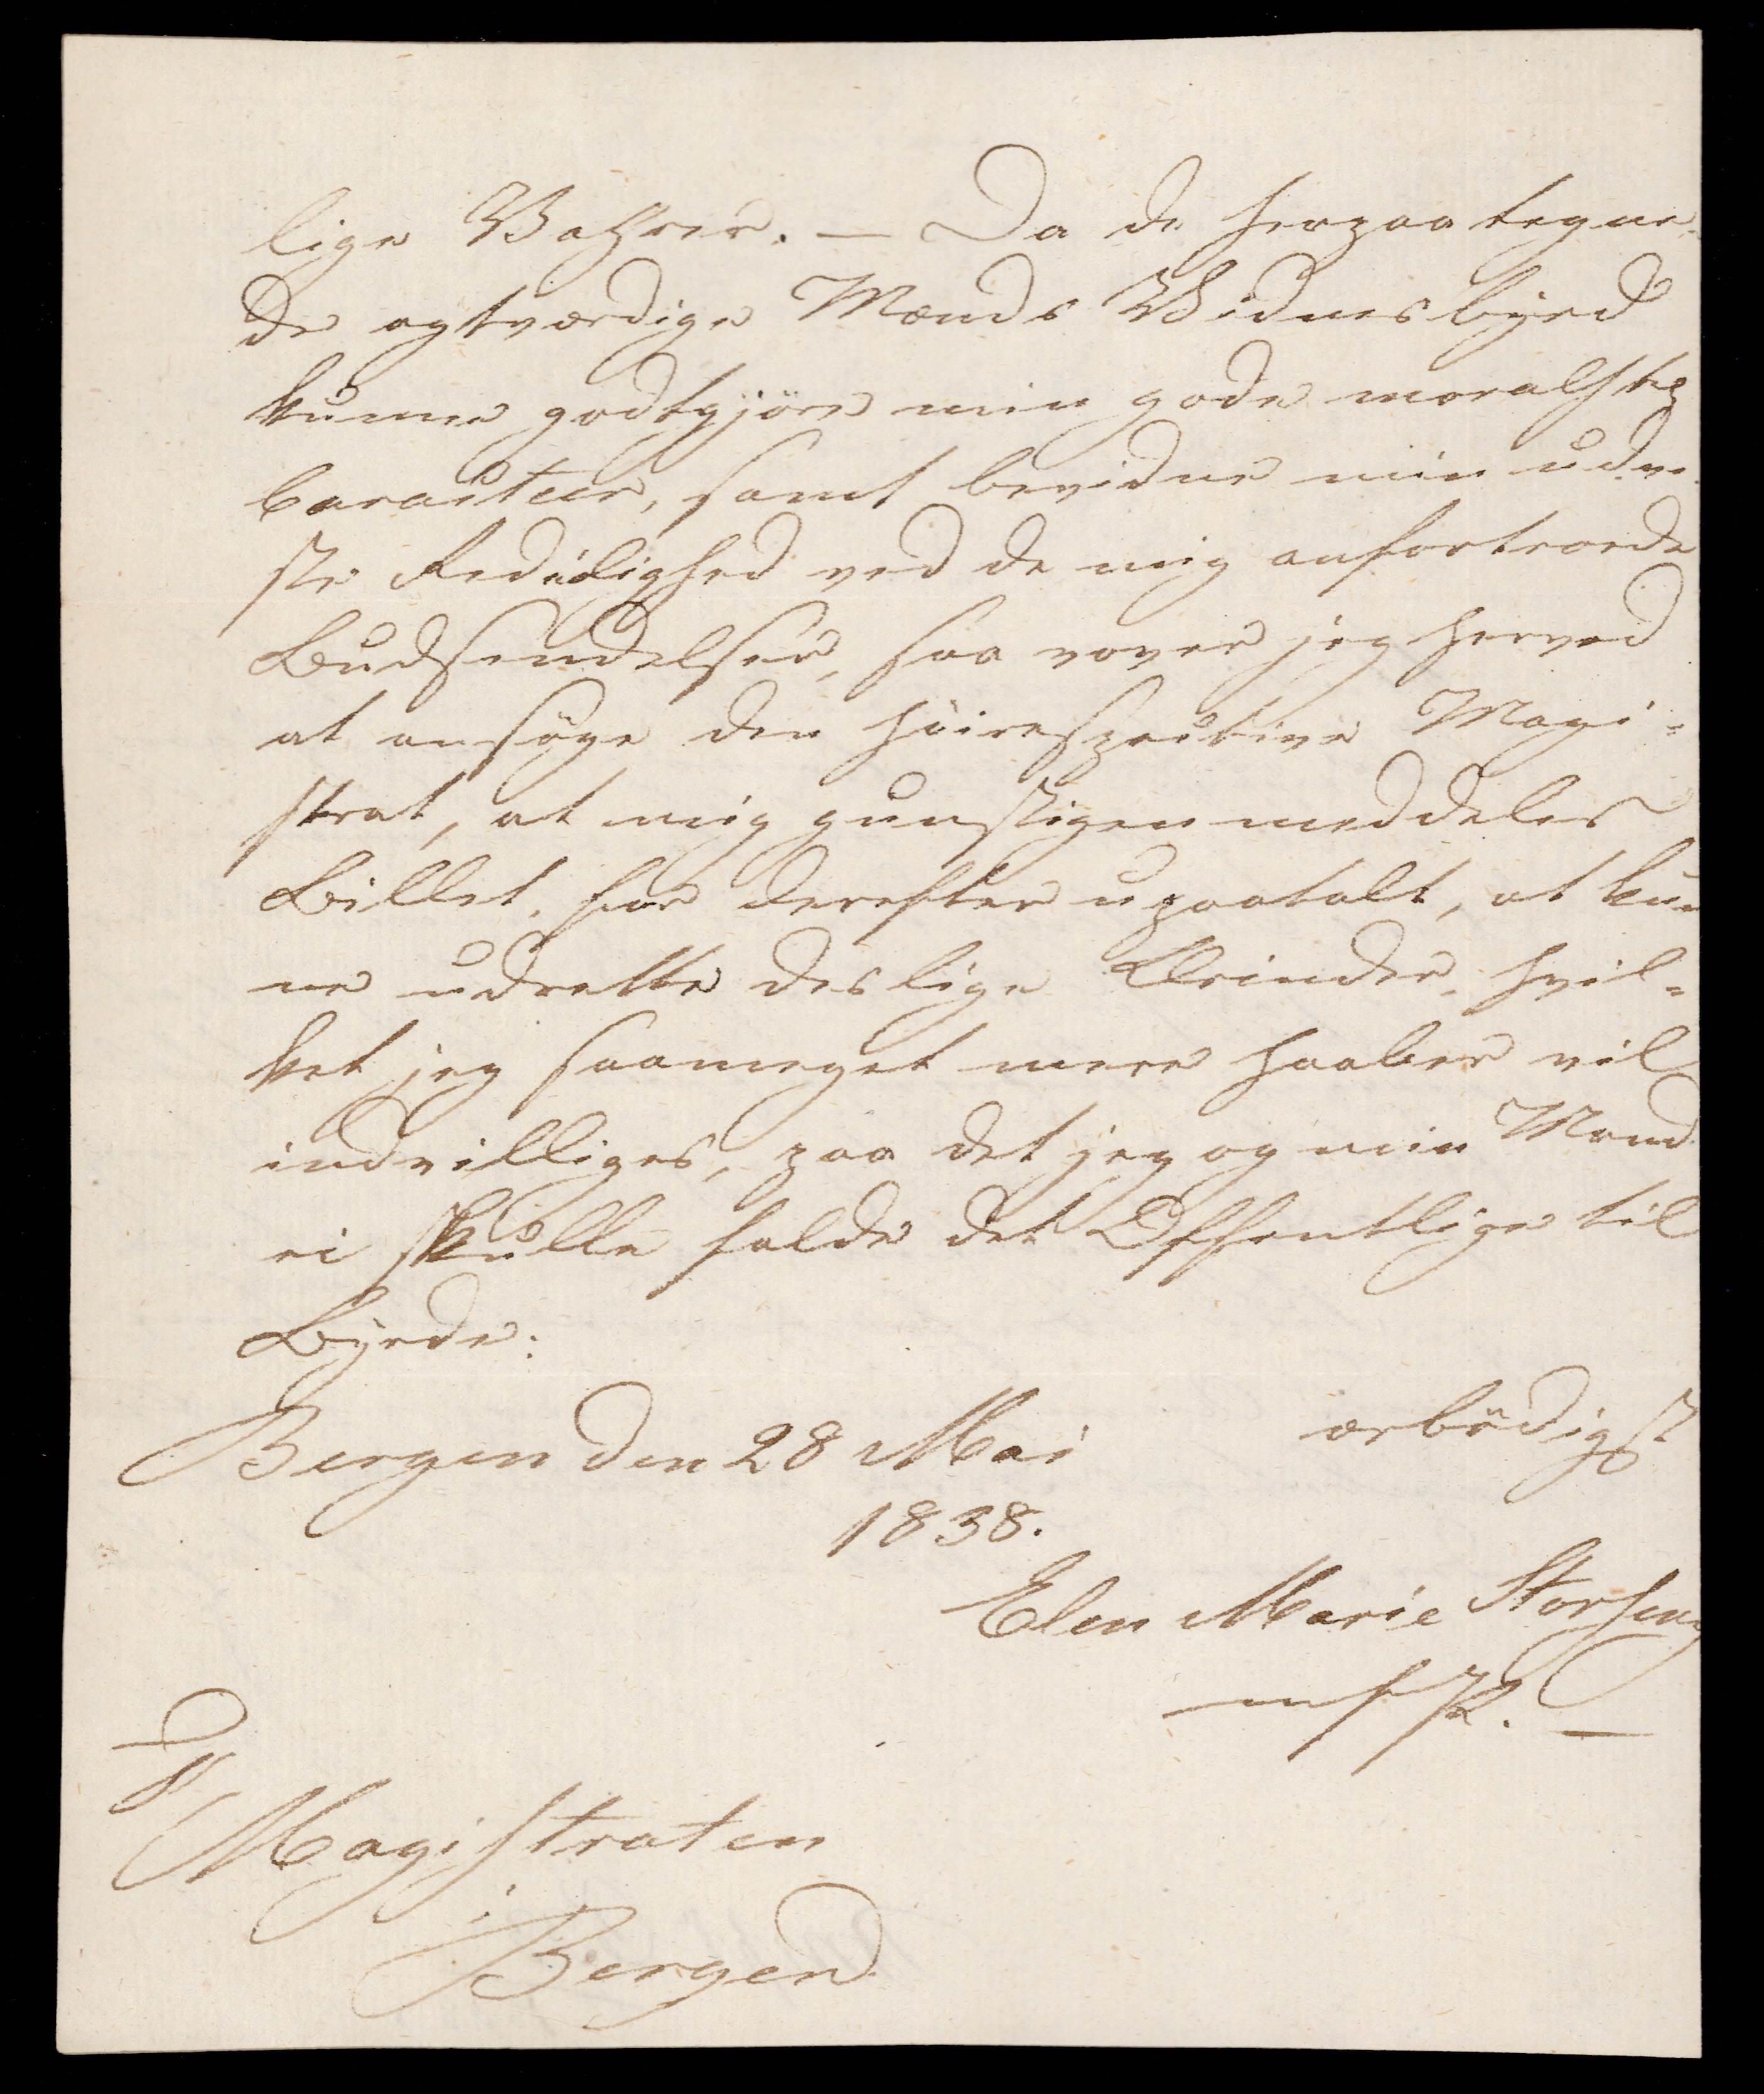 lige Vahrer. — Da de herpaa tegne-
de agtværdige Mænds Vidnesbyrd
kunne godtgjøre min gode moralske
Caracteer, samt bevidne min udvi-
ste Redelighed ved de mig anfortroede
Budsendelser, saa vover jeg herved
at ansøge den høirespective Magi-
strat, at mig gunstigen meddeles
Billet, for derefter upaatalt, at kun
ne udrette deslige Ærinder, hvil-
ket jeg saameget mere haaber vil
indvilliges, paa det jeg og min Mand
ei skulle falde det Offentlige til
Byrde:
Bergen den 28 Mai
ærbødigst
1838.
Elen Marie Storseng
m f P. —
Til
Magistraten
i Bergen